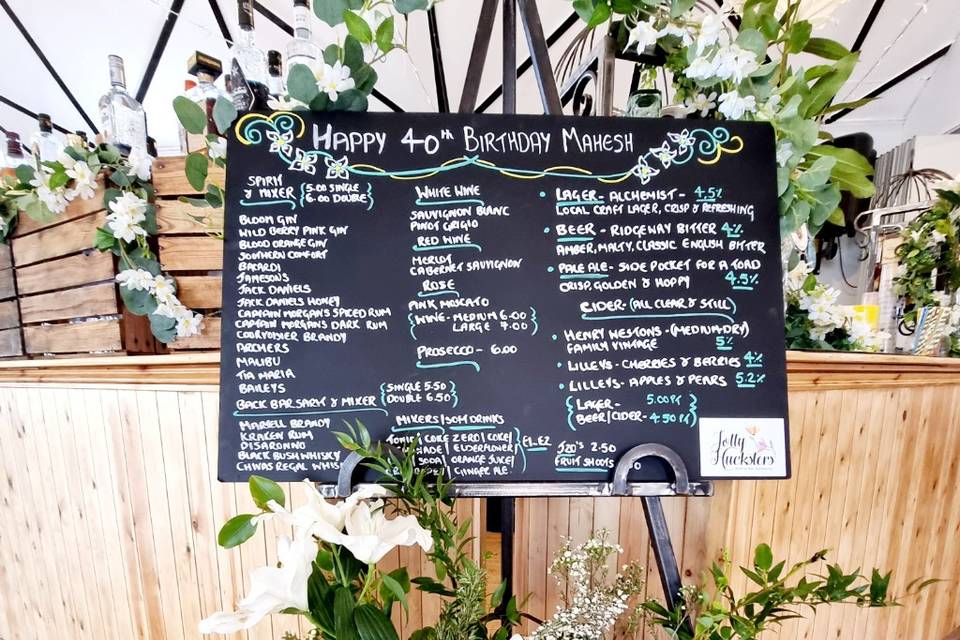 HAPPY 40TH BIRTHDAY MAHESH
SPIRIT
& MIXER {5.00 SINGLE
6.00 DOUBLE}
BLOOM GIN
WILD BERRY PINK GIN
BLOOD ORANGE GIN
SOUTHERN COMFORT
BACARDI
JAMESONS
JACK DANIELS
JACK DANIELS HONEY
CAPTAIN MORGAN'S SPICED RUM
CAPTAIN MORGANS DARK RUM
COURVOISIER BRANDY
ARCHERS
MALIBU
TIA MARIA
BAILEYS
BACK BAR SARY & MIXER {SINGLE 5.50
DOUBLE 6.50}
MARTELL BRANDY
KRAKEN RUM
DISARONNO
BLACK BUSH WHISKY
CHIVAS REGAL WHIS
WHITE WINE
SAUVIGNON BLANC
PINOT GRIGIO
RED WINE
MERLOT
CABERNET SAUVIGNON
ROSE
PINK MOSCATO
{WINE - MEDIUM 6.00
LARGE 7.00}
PROSECCO - 6.00
MIXERS/SOFT DRINKS
TONIC/COKE ZERO/COKE/
ADE/ELDERFLOWER/
SODA/ORANGE JUICE/
/GINGER ALE
£1-£2
• LAGER - ALCHEMIST - 4.5%
LOCAL CRAFT LAGER, CRISP & REFRESHING
• BEER - RIDGEWAY BITTER 4%
AMBER, MALTY, CLASSIC ENGLISH BITTER
• PALE ALE - SIDE POCKET FOR A TOAD
CRISP, GOLDEN & HOPPY 4.5%
CIDER - (ALL CLEAR & STILL)
• HENRY WESTONS - (MEDIUM-DRY)
FAMILY VINTAGE 5%
• LILLEYS - CHERRIES & BERRIES 4%
• LILLEYS - APPLES & PEARS 5.2%
{LAGER - 5.00PT
BEER/CIDER - 4.50PT}
J2O'S 2.50
FRUIT SHOOTS
Jolly
Hucksters